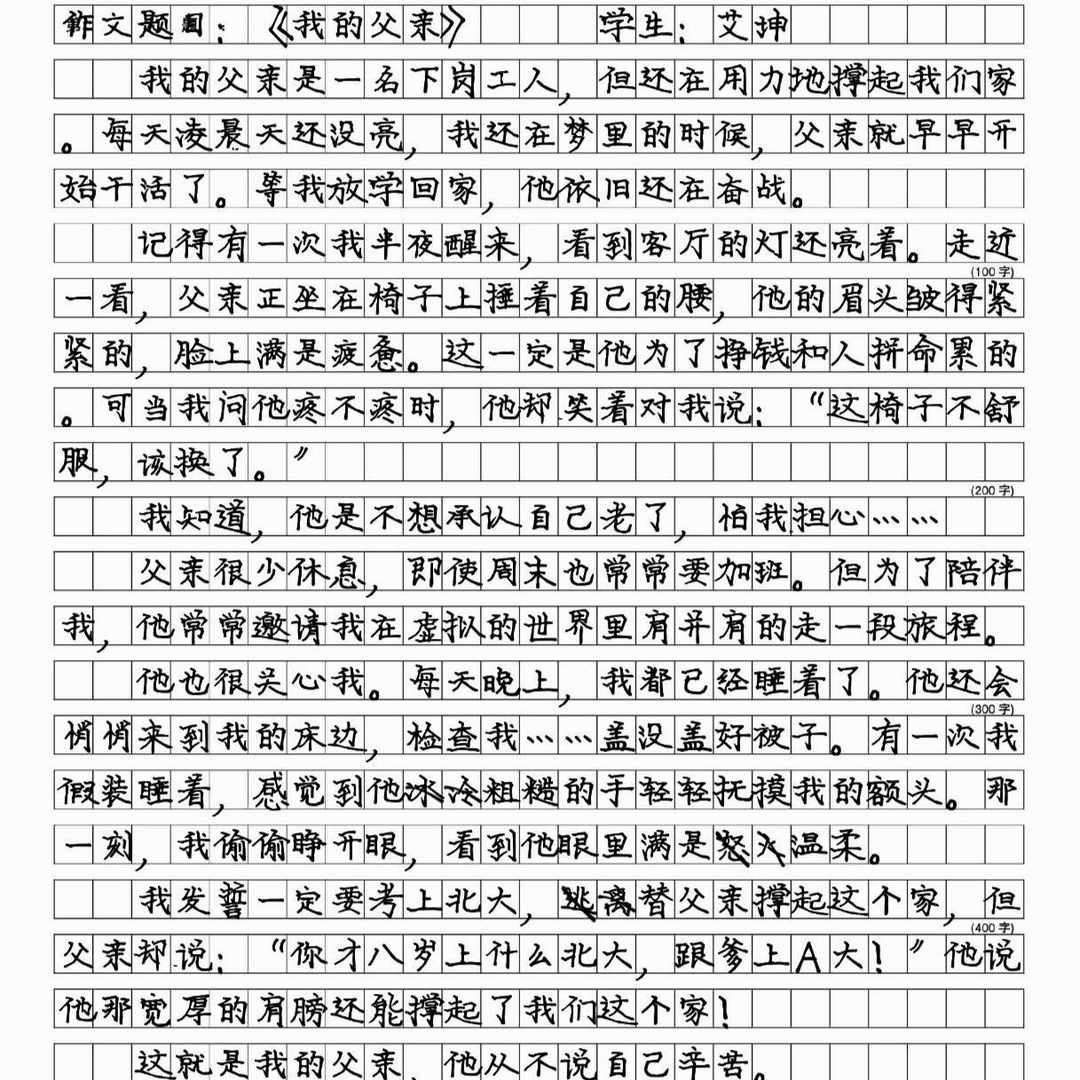 作文题目：《我的父亲》 学生：艾坤
我的父亲是一名下岗工人，但还在用力地撑起我们家
。每天凌晨天还没亮，我还在梦里的时候，父亲就早早开
始干活了。等我放学回家，他依旧还在奋战。
记得有一次我半夜醒来，看到客厅的灯还亮着。走近
(100字)
一看，父亲正坐在椅子上捶着自己的腰，他的眉头皱得紧
紧的，脸上满是疲惫。这一定是他为了挣钱和人拼命累的
。可当我问他疼不疼时，他却笑着对我说：“这椅子不舒
服，该换了。”
(200字)
我知道，他是不想承认自己老了，怕我担心……
父亲很少休息，即使周末也常常要加班。但为了陪伴
我，他常常邀请我在虚拟的世界里肩并肩的走一段旅程。
他也很关心我。每天晚上，我都已经睡着了。他还会
(300字)
悄悄来到我的床边，检查我……盖没盖好被子。有一次我
假装睡着，感觉到他冰冷粗糙的手轻轻抚摸我的额头。那
一刻，我偷偷睁开眼，看到他眼里满是怒火温柔。
我发誓一定要考上北大，逃离替父亲撑起这个家，但
(400字)
父亲却说：“你才八岁上什么北大，跟爹上A大！”他说
他那宽厚的肩膀还能撑起了我们这个家！
这就是我的父亲，他从不说自己辛苦。